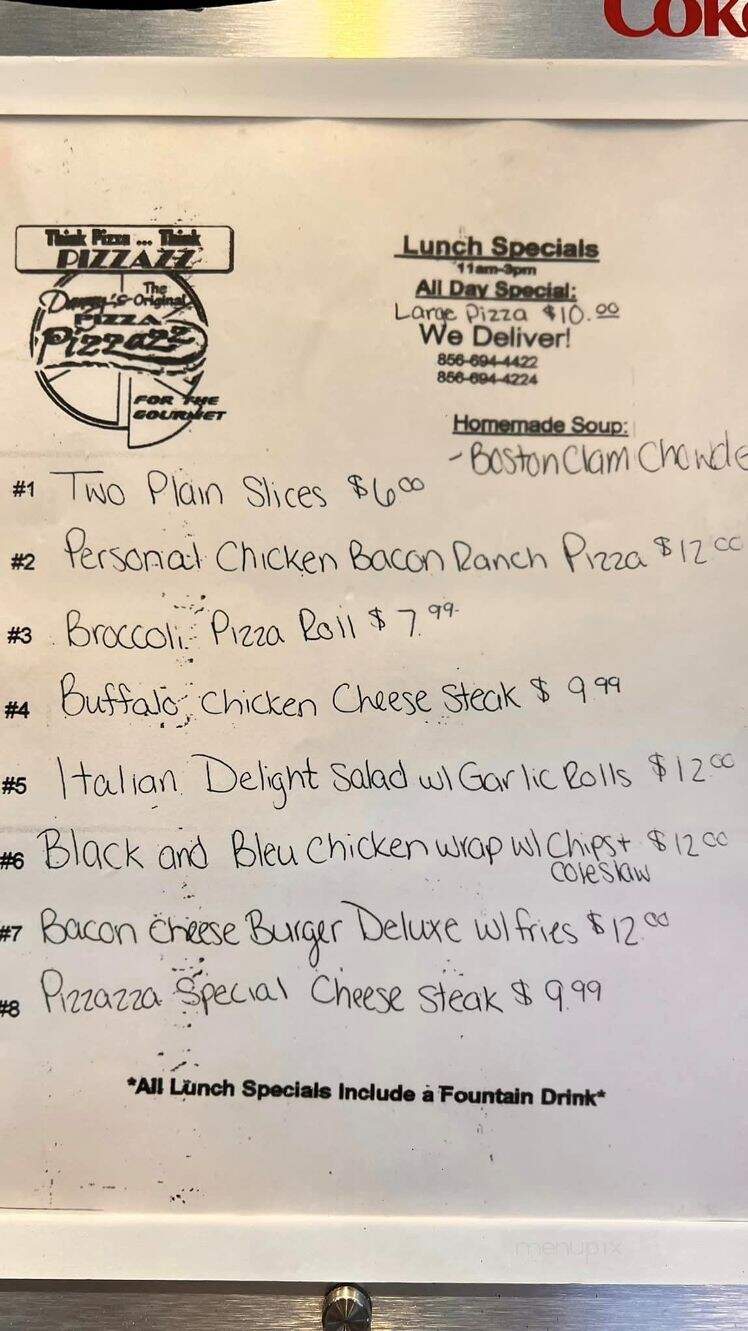 Coke
Think Pizza ... Think
PIZZAZZ
The
Danny's Original
PIZZA
Pizzazz
FOR THE
GOURMET
Lunch Specials
11am-3pm
All Day Special:
Large Pizza $10.00
We Deliver!
856-694-4422
856-694-4224
Homemade Soup:
- Boston Clam Chowde
#1 Two Plain Slices $6.00
#2 Personal Chicken Bacon Ranch Pizza $12.00
#3 Broccoli Pizza Roll $7.99
#4 Buffalo Chicken Cheese Steak $9.99
#5 Italian Delight Salad w/ Garlic Rolls $12.00
#6 Black and Bleu Chicken wrap w/ Chips + $12.00
coleslaw
#7 Bacon Cheese Burger Deluxe w/ fries $12.00
#8 Pizzazza Special Cheese Steak $9.99
*All Lunch Specials Include a Fountain Drink*
menupix